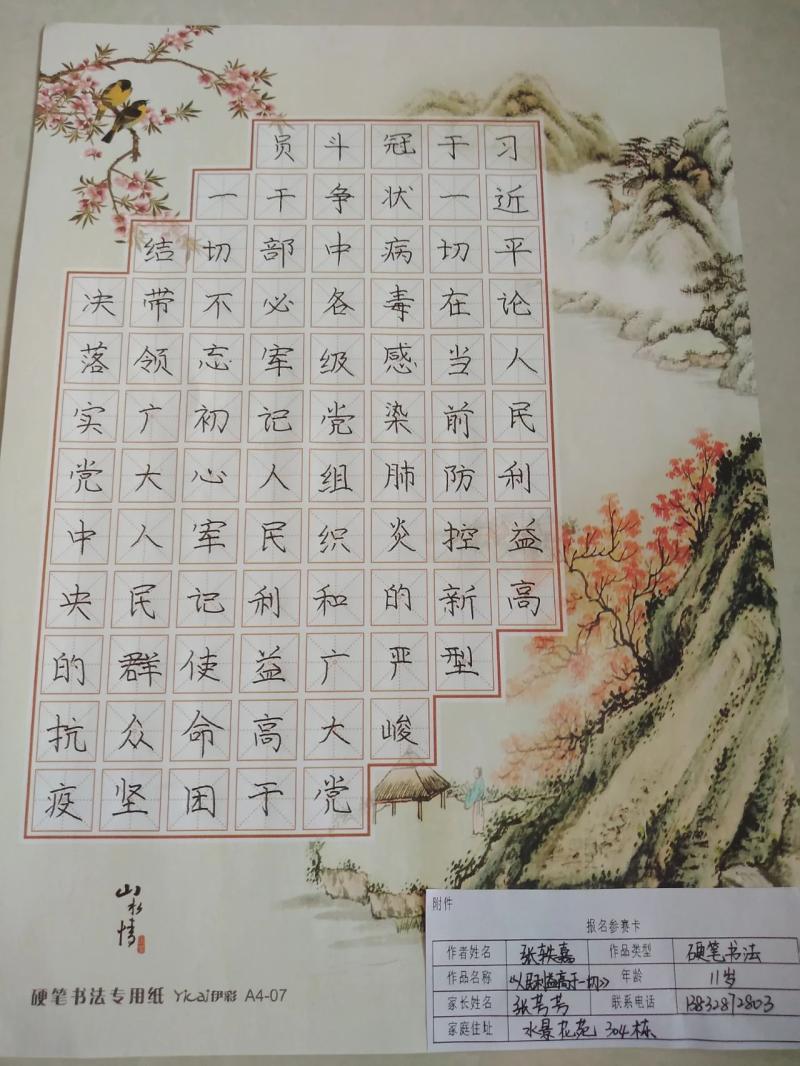 习近平论人民利益高
于一切在当前防控新型
冠状病毒感染肺炎的严峻
斗争中各级党组织和广大党
员干部必牢记人民利益高于
一切不忘初心牢记使命团
结带领广大人民群众坚
决落实党中央的抗疫
山水情
硬笔书法专用纸 Yicai伊彩 A4-07
附件
报名参赛卡
作者姓名 张轶嘉 作品类型 硬笔书法
作品名称 《人民利益高于一切》 年龄 11岁
家长姓名 张芳芳 联系电话 13832872803
家庭住址 水景花苑 304栋